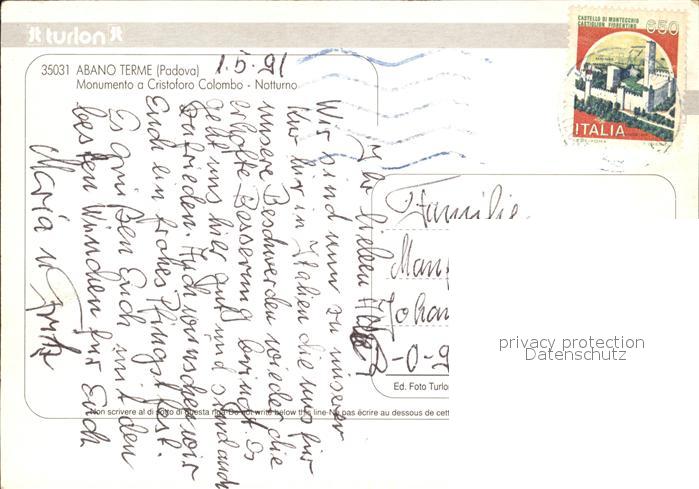 turlon
35031 ABANO TERME (Padova)
Monumento a Cristoforo Colombo - Notturno
1.5.91
CASTELLO DI MONTECCHIO
CASTIGLION FIORENTINO
650
ITALIA
Ihr lieben
Wir sind nun zu unserer
Kur hier in Italien die uns für
unsere Beschwerden wieder die
erhoffte Besserung bringt. Es
geht uns hier gut und sind auch
zufrieden. Auch wünschen wir
Euch ein frohes Pfingstfest.
Es grüßen Euch mit den
besten Wünschen für Euch
Maria u Fritz
Familie
Man
Joha
-0-9
privacy protection
Datenschutz
Ed. Foto Turlon
Non scrivere al di sotto di questa riga-Do not write below this line-Ne pas écrire au dessous de cett